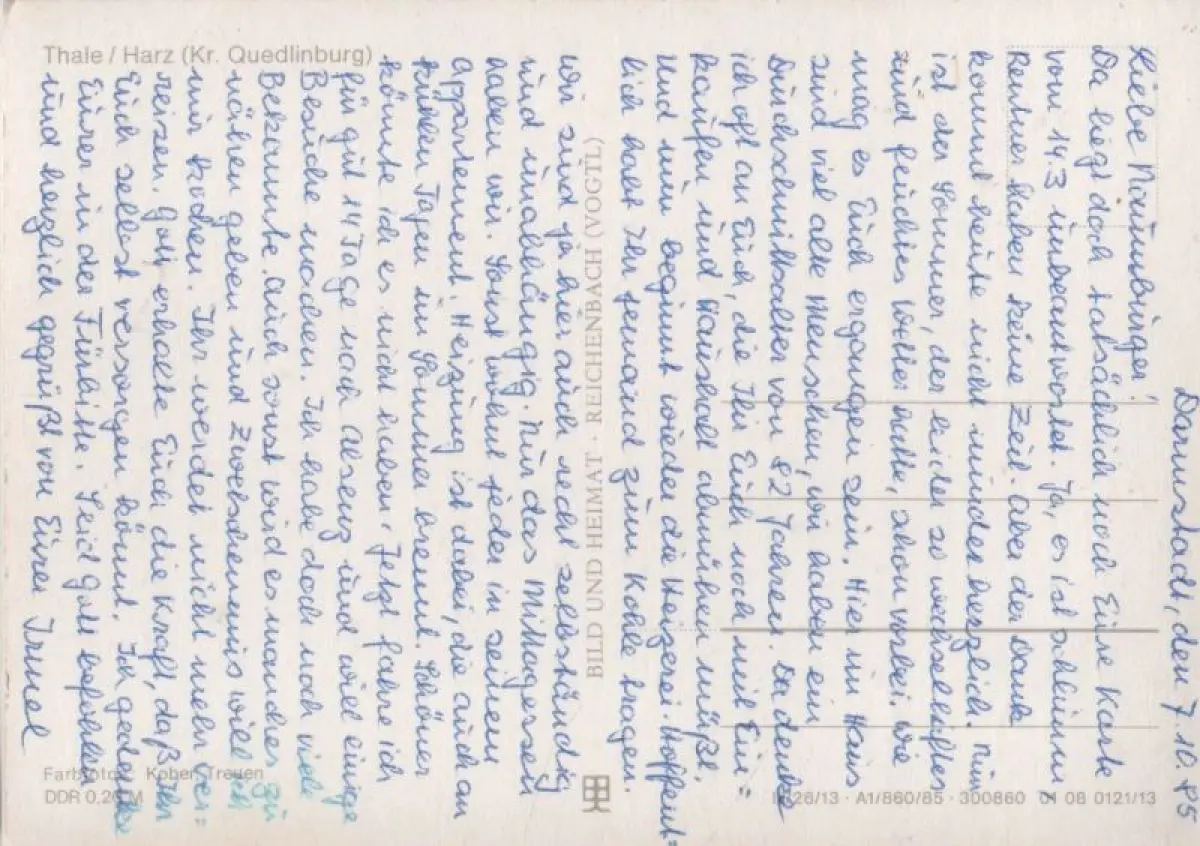 Thale / Harz (Kr. Quedlinburg)
Darmstadt, den 7.10.85
Liebe Naumburger!
Da liegt doch tatsächlich noch Eure Karte
vom 14.3 unbeantwortet. Ja, es ist schlimm
Rentner haben keine Zeit. Aber der Dank
kommt heute nicht minder herzlich. Nun
ist der Sommer, der leider so wechselhaftes
und feuchtes Wetter hatte, schon vorbei. Wie
mag es Euch ergangen sein. Hier im Haus
sind viel alte Menschen, wir haben ein
Durchschnittsalter von 82 Jahren. Da denke
ich oft an Euch, die Ihr Euch noch mit Ein=
kaufen und Haushalt abmühen müßt.
Und nun beginnt wieder die Heizerei. Hoffent=
lich habt Ihr jemand zum Kohle tragen.
Wir sind ja hier auch recht selbständig
und unabhängig. Nur das Mittagessen
haben wir. Sonst wohnt jeder in seinem
Appartement. Heizung ist dabei, die auch an
kühlen Tagen im Sommer brennt. Schöner
könnte ich es nicht haben. Jetzt fahre ich
für gut 14 Tage nach und will einige
Besuche machen. Ich habe doch noch viele
Bekannte. Auch sonst wird es manches zu
nähen geben und Zwetschenmus will ich
mir kochen. Ihr werdet nicht mehr ver=
reisen. Gott erhalte Euch die Kraft, daß Ihr
Euch selbst versorgen könnt. Ich gedenke
Eurer in der Fürbitte. Seid Gott befohlen
und herzlich gegrüßt von Eurer Irmel
BILD UND HEIMAT · REICHENBACH (VOGTL.)
Farbfoto: Kober, Treuen
DDR 0,20 M
A1/860/85 · 300860 01 08 0121/13